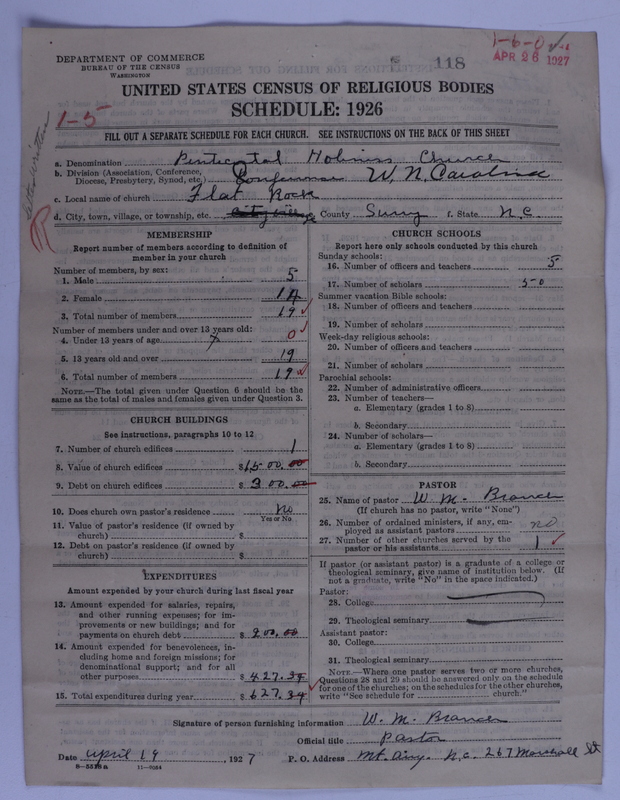 1-6-0
APR 26 1927
118
DEPARTMENT OF COMMERCE
BUREAU OF THE CENSUS
WASHINGTON
UNITED STATES CENSUS OF RELIGIOUS BODIES
SCHEDULE: 1926
1-5
FILL OUT A SEPARATE SCHEDULE FOR EACH CHURCH. SEE INSTRUCTIONS ON THE BACK OF THIS SHEET
a. Denomination Pentecostal Holiness Church
b. Division (Association, Conference, Diocese, Presbytery, Synod, etc.) Conference W. N. Carolina
c. Local name of church Flat Rock
d. City, town, village, or township, etc. County Surry f. State N.C.
MEMBERSHIP
Report number of members according to definition of
member in your church
Number of members, by sex:
1. Male 5
2. Female 14
3. Total number of members 19
Number of members under and over 13 years old:
4. Under 13 years of age 0
5. 13 years old and over 19
6. Total number of members 19
NOTE.—The total given under Question 6 should be the
same as the total of males and females given under Question 3.
CHURCH BUILDINGS
See instructions, paragraphs 10 to 12
7. Number of church edifices 1
8. Value of church edifices $1500.00
9. Debt on church edifices $300.00
10. Does church own pastor's residence No
Yes or No
11. Value of pastor's residence (if owned by
church) $
12. Debt on pastor's residence (if owned by
church) $
EXPENDITURES
Amount expended by your church during last fiscal year
13. Amount expended for salaries, repairs,
and other running expenses; for im-
provements or new buildings; and for
payments on church debt $200.00
14. Amount expended for benevolences, in-
cluding home and foreign missions; for
denominational support; and for all
other purposes $427.34
15. Total expenditures during year $627.34
CHURCH SCHOOLS
Report here only schools conducted by this church
Sunday schools:
16. Number of officers and teachers 5
17. Number of scholars 50
Summer vacation Bible schools:
18. Number of officers and teachers
19. Number of scholars
Week-day religious schools:
20. Number of officers and teachers
21. Number of scholars
Parochial schools:
22. Number of administrative officers
23. Number of teachers—
a. Elementary (grades 1 to 8)
b. Secondary
24. Number of scholars—
a. Elementary (grades 1 to 8)
b. Secondary
PASTOR
25. Name of pastor W. M. Branch
(If church has no pastor, write "None")
26. Number of ordained ministers, if any, em-
ployed as assistant pastors no
27. Number of other churches served by the
pastor or his assistants 1
If pastor (or assistant pastor) is a graduate of a college or
theological seminary, give name of institution below. (If
not a graduate, write "No" in the space indicated.)
Pastor:
28. College
29. Theological seminary
Assistant pastor:
30. College
31. Theological seminary
NOTE.—Where one pastor serves two or more churches,
Questions 28 and 29 should be answered only on the schedule
for one of the churches; on the schedules for the other churches,
write "See schedule for church."
Signature of person furnishing information W. M. Branch
Official title Pastor
Date April 19, 1927 P. O. Address Mt. Airy. N.C. 267 Marshall St
8—5316a 11—9084